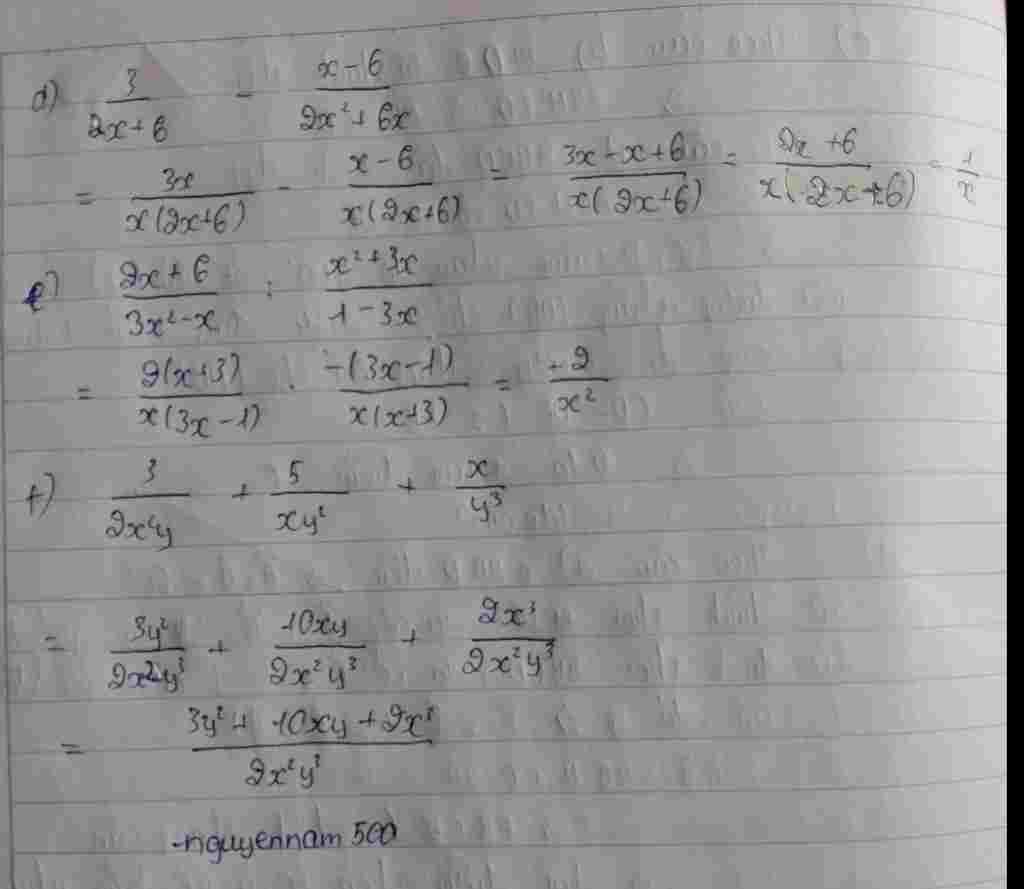 d) 3/(2x+6) - (x-6)/(2x²+6x)
= 3x/(x(2x+6)) - (x-6)/(x(2x+6)) = (3x-x+6)/(x(2x+6)) = (2x+6)/(x(2x+6)) = 1/x
e) (2x+6)/(3x²-x) : (x²+3x)/(1-3x)
= 2(x+3)/(x(3x-1)) . -(3x-1)/(x(x+3)) = -2/x²
f) 3/(2x²y) + 5/(xy²) + x/y³
= 3y²/(2x²y³) + 10xy/(2x²y³) + 2x³/(2x²y³)
= (3y²+10xy+2x³)/(2x²y³)
-nguyennam 500